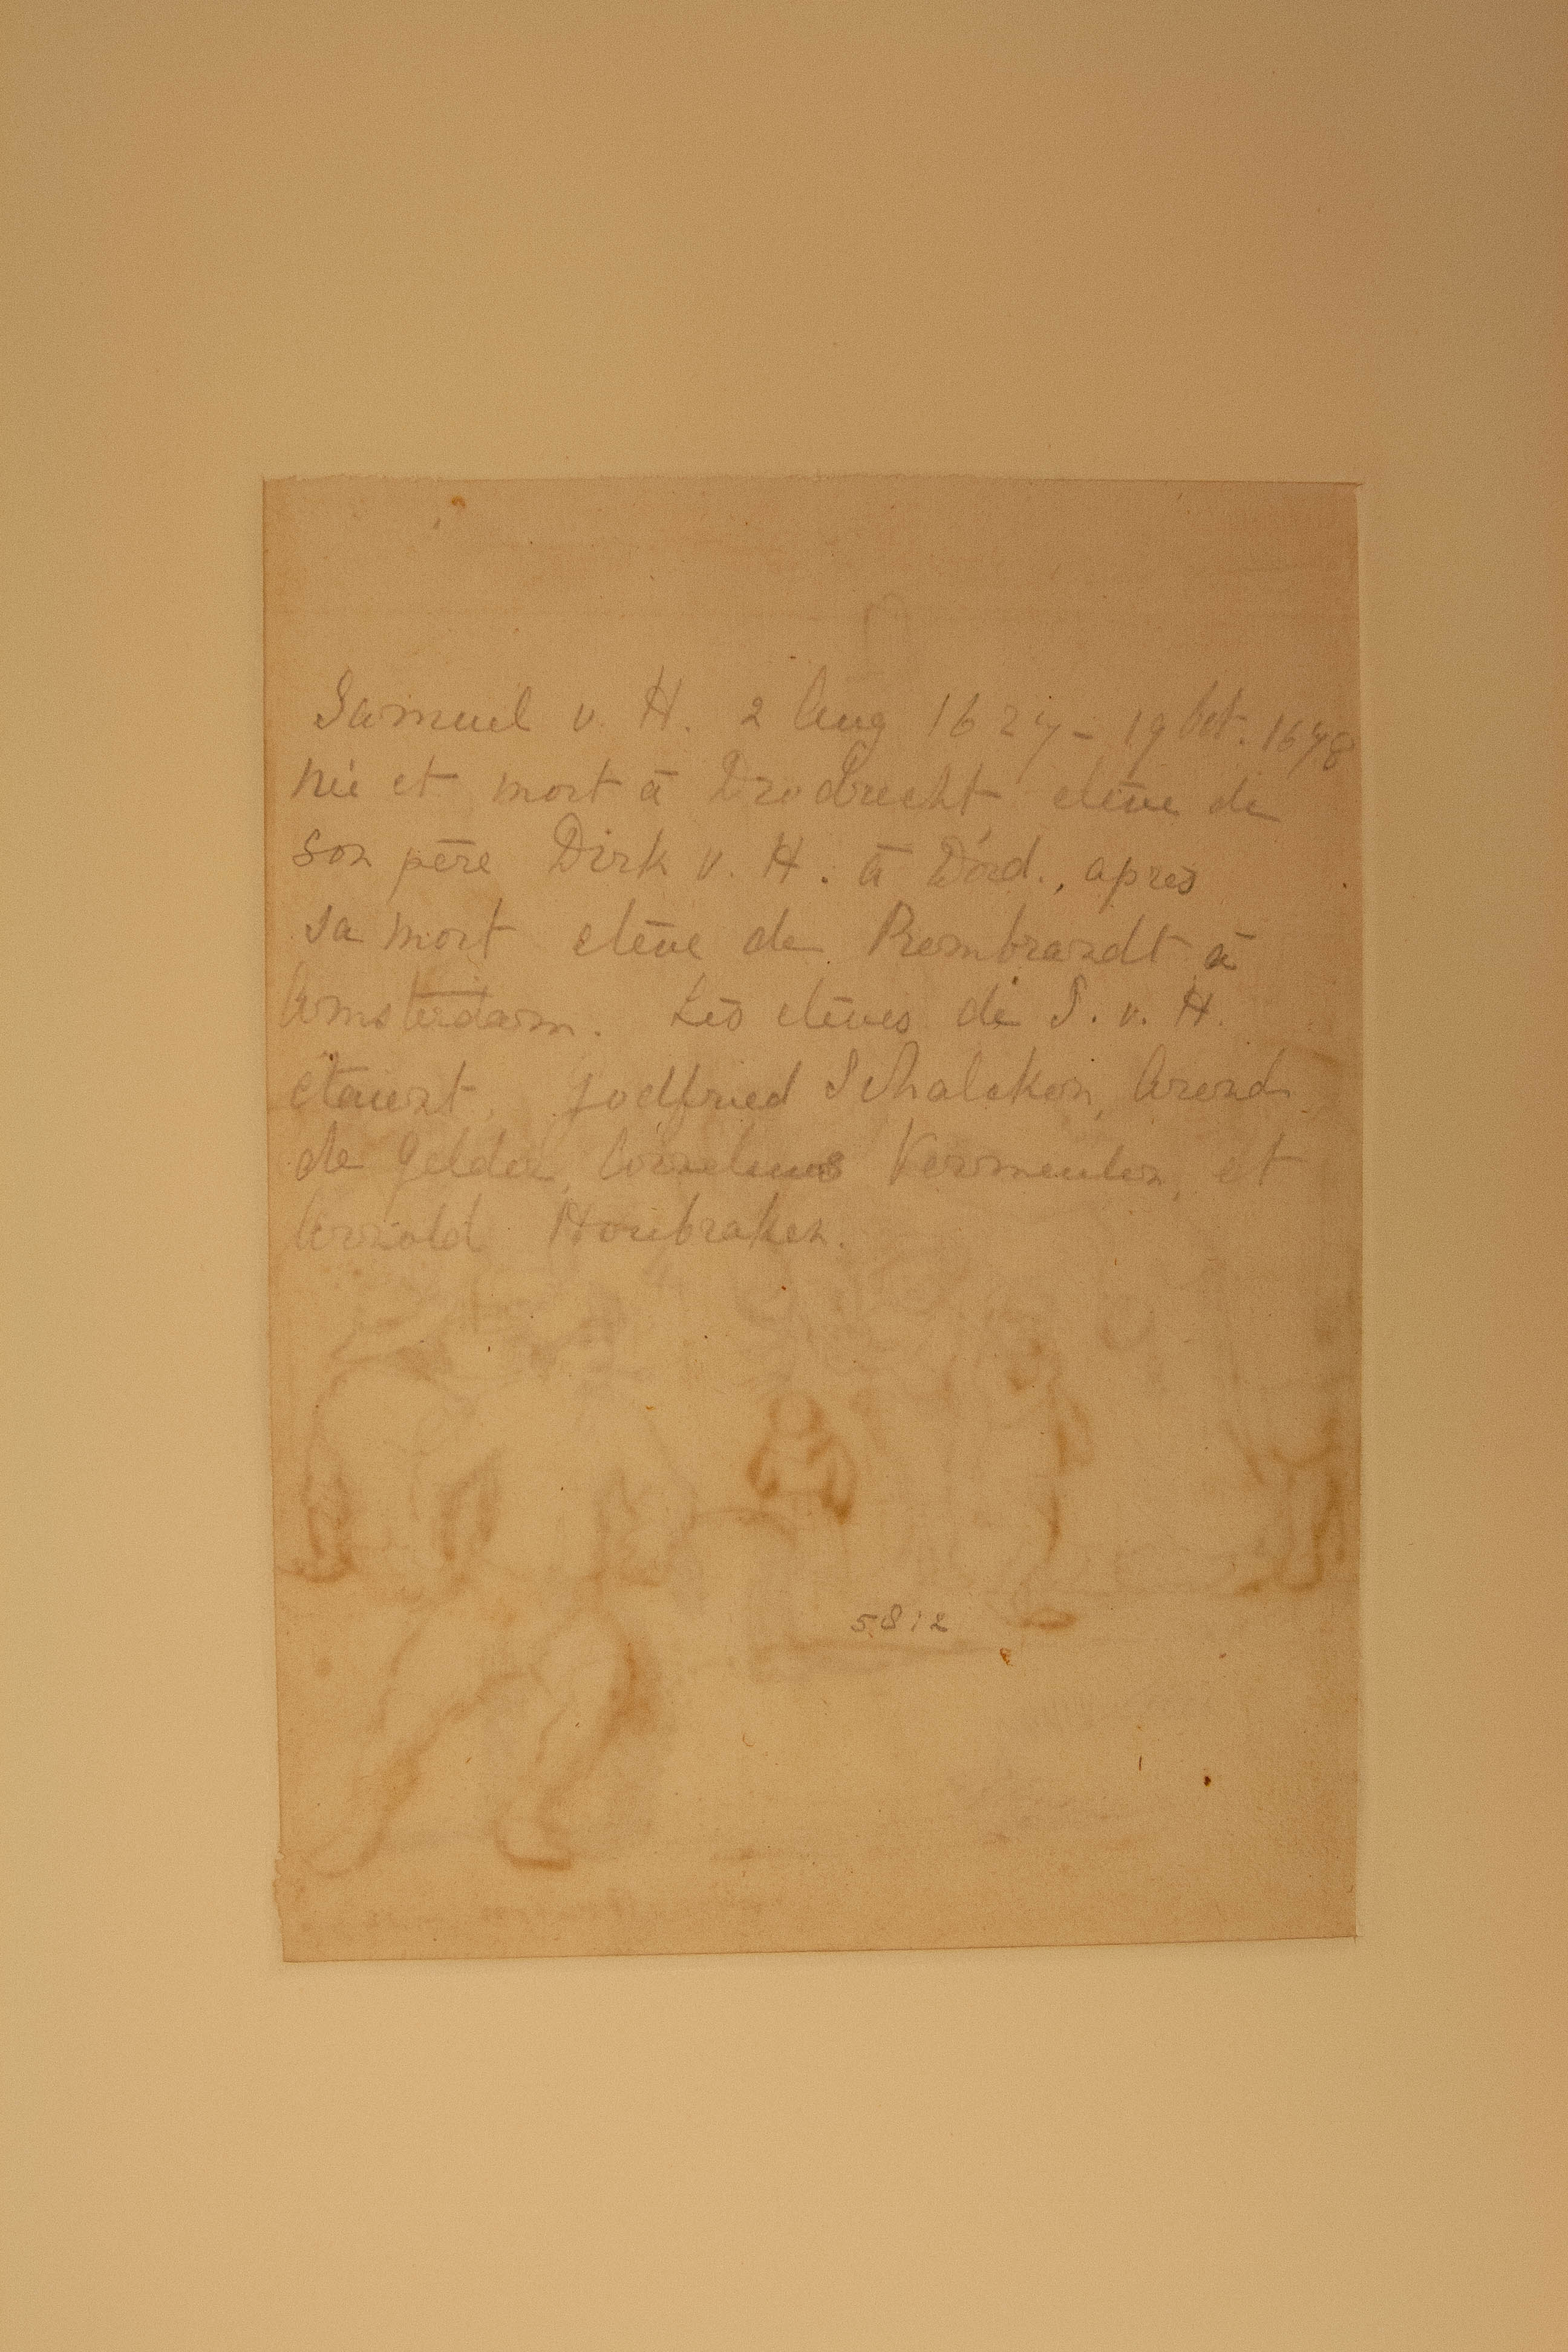 Samuel v. H. 2 Aug 1627 - 19 Oct. 1678
né et mort à Drodrecht elève de
son père Dirk v. H. à Dord., apres
sa mort elève de Rembrandt à
Amsterdam. Les elèves de S. v. H.
etaient, Godfried Schalcken, Arend
de Gelder, Cornelius Vermeulen, et
Arnold Houbraken.
5812